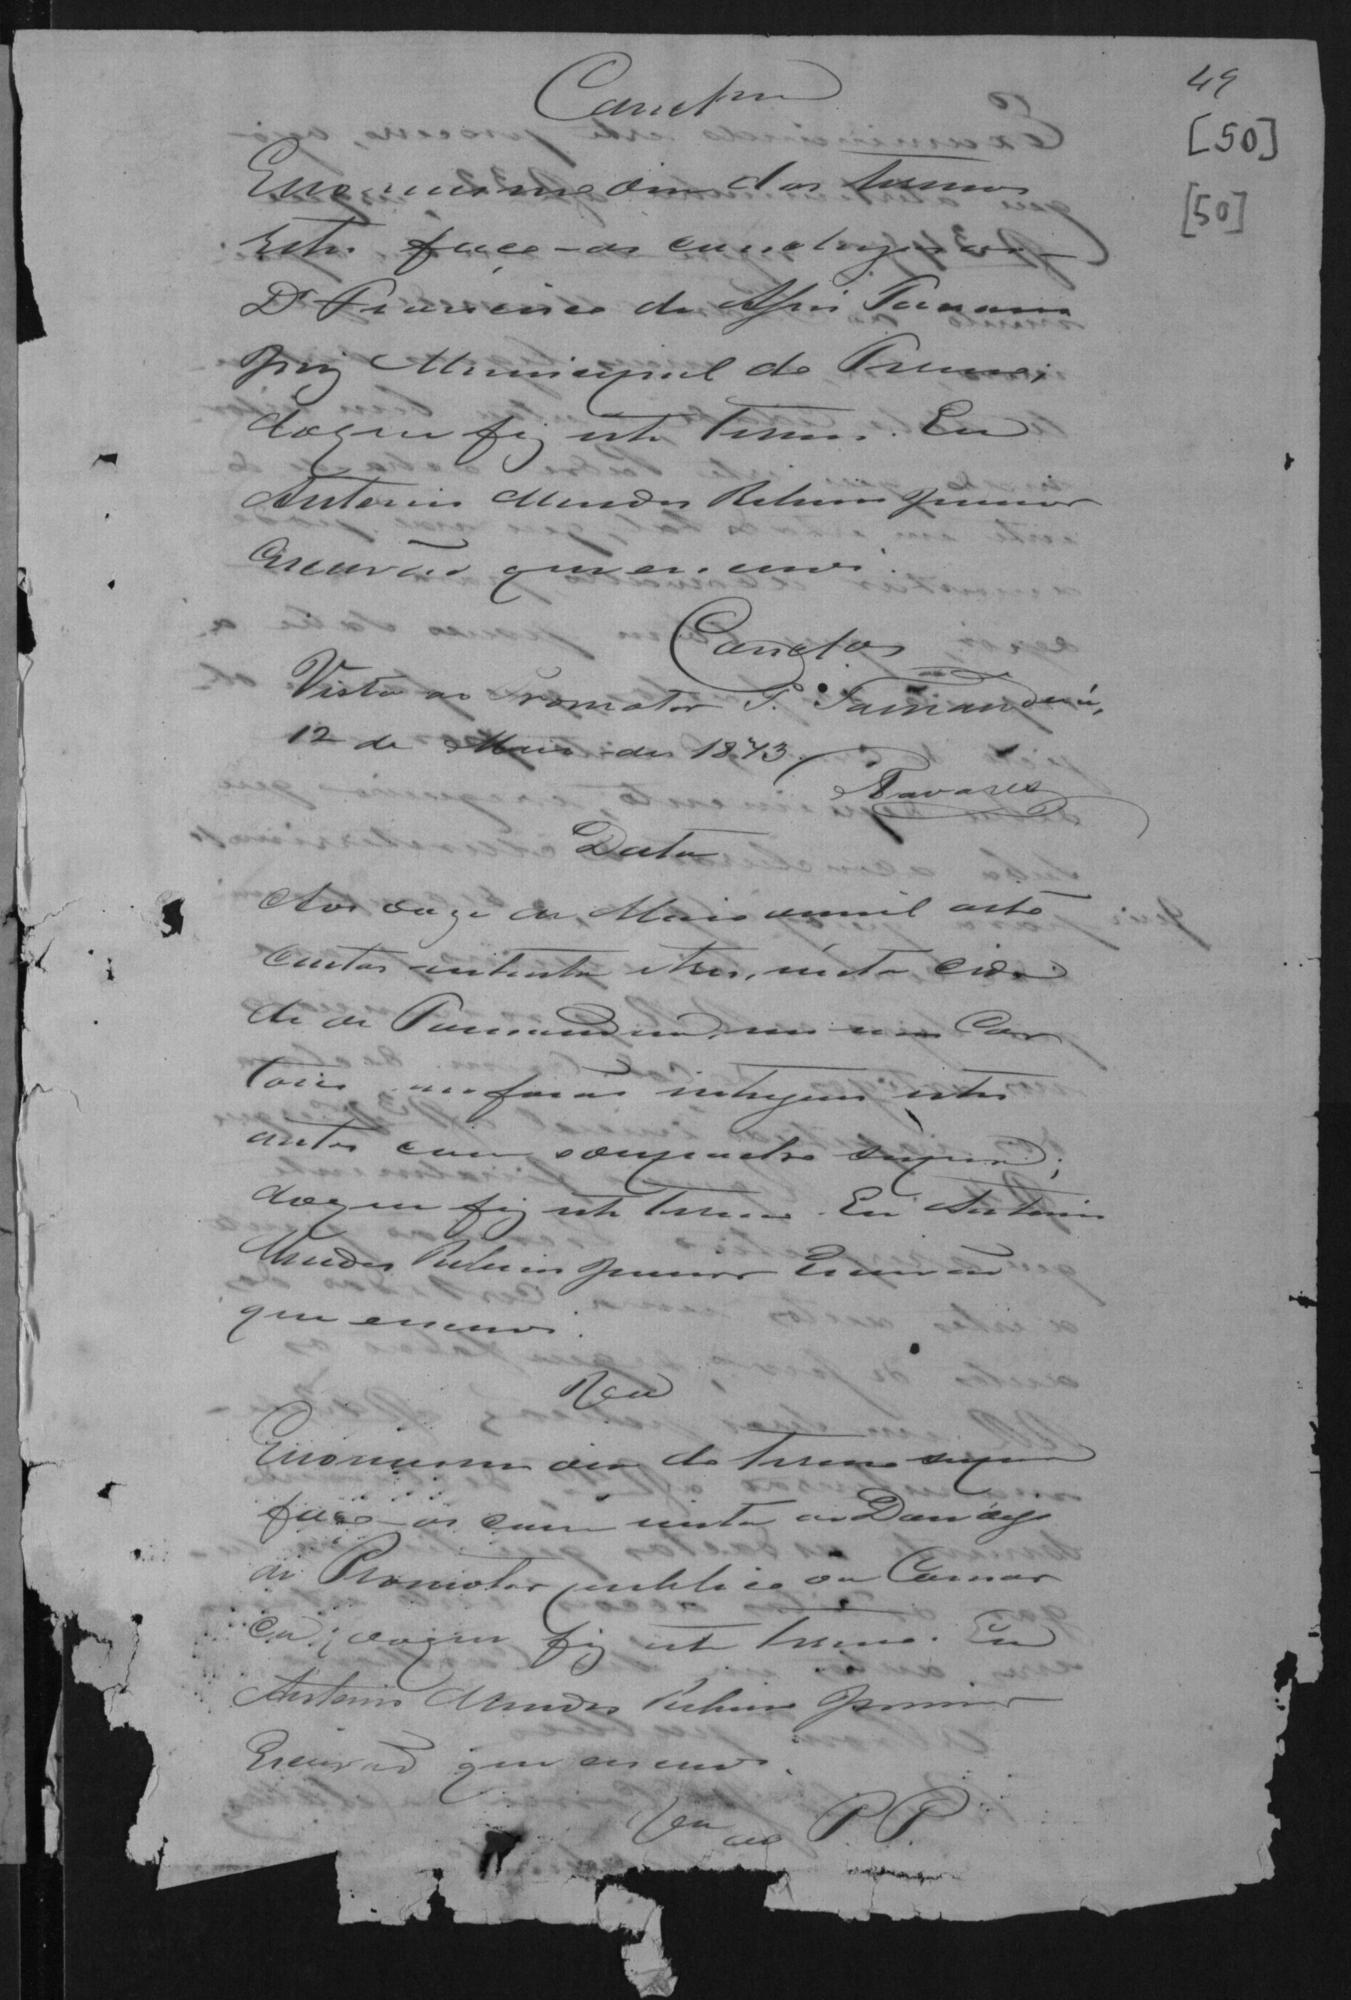 49
[50]
[50]
Concl.m
E no mesmo dia do termo
retro faço-os conclusos ao
Dr Francisco de Assis Tavares
Juiz Municipal do Termo;
do que fiz este termo. Eu
Antonio Mendes Ribeiro Junior
Escrivão que escrevi.
Conclos
Vista ao Promotor P. Tamanduá,
12 de Maio de 1873.
Tavares
Data
Aos doze de Maio de mil oito
centos setenta e tres, nesta cida
de de Tamanduá, em meu Car
torio me forão entregues estes
autos com o despacho supra;
do que fiz este termo. Eu Antonio
Mendes Ribeiro Junior Escrivão
que escrevi.
E no mesmo dia do termo supra
faço-os com vista ao
de Promotor publico da Comar
ca; do que fiz este termo. Eu
Antonio Mendes Ribeiro Junior
Escrivão que escrevi.
ao P. P.